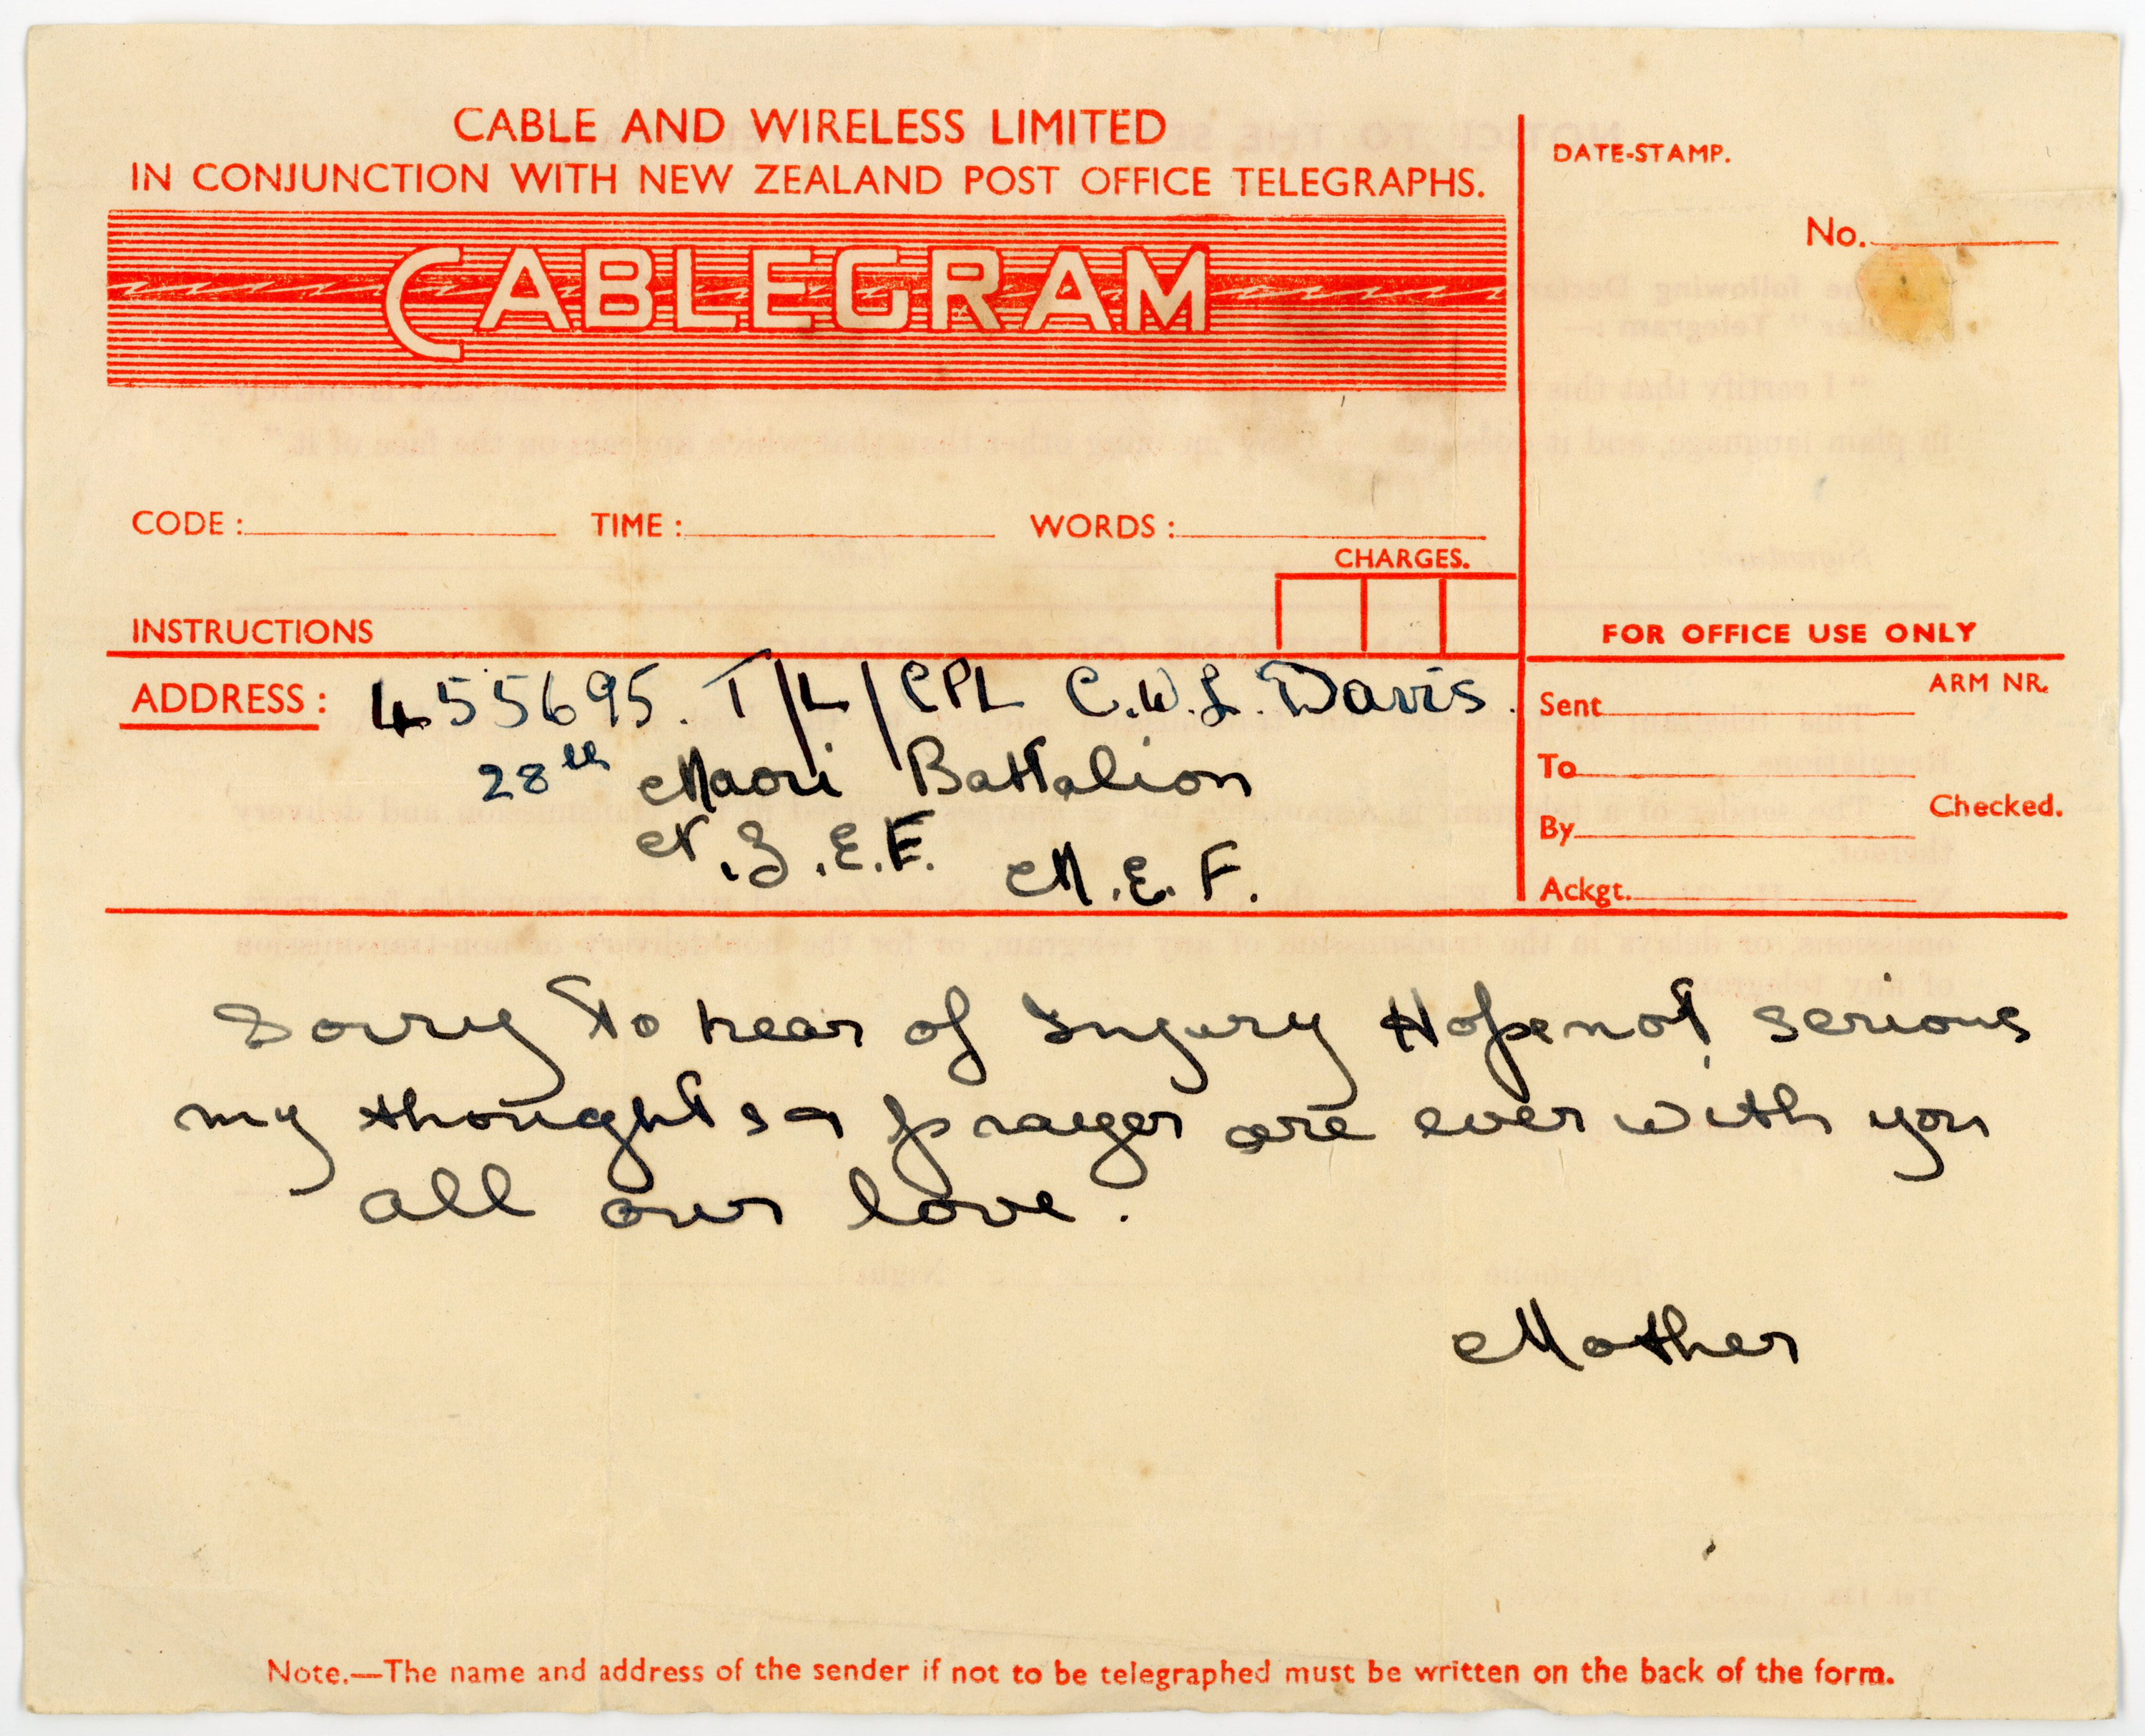 CABLE AND WIRELESS LIMITED
IN CONJUNCTION WITH NEW ZEALAND POST OFFICE TELEGRAPHS.
CABLEGRAM
DATE-STAMP.
No.
CODE: TIME: WORDS:
CHARGES.
INSTRUCTIONS
FOR OFFICE USE ONLY
ADDRESS: 455695. T/L/CPL C.W.L. Davis.
28th Maori Battalion
N.Z.E.F. M.E.F.
Sent
ARM NR.
To
Checked.
By
Ackgt.
Sorry to hear of Injury Hope not serious
my thoughts & prayer are ever with you
all our love.
Mother
Note.—The name and address of the sender if not to be telegraphed must be written on the back of the form.